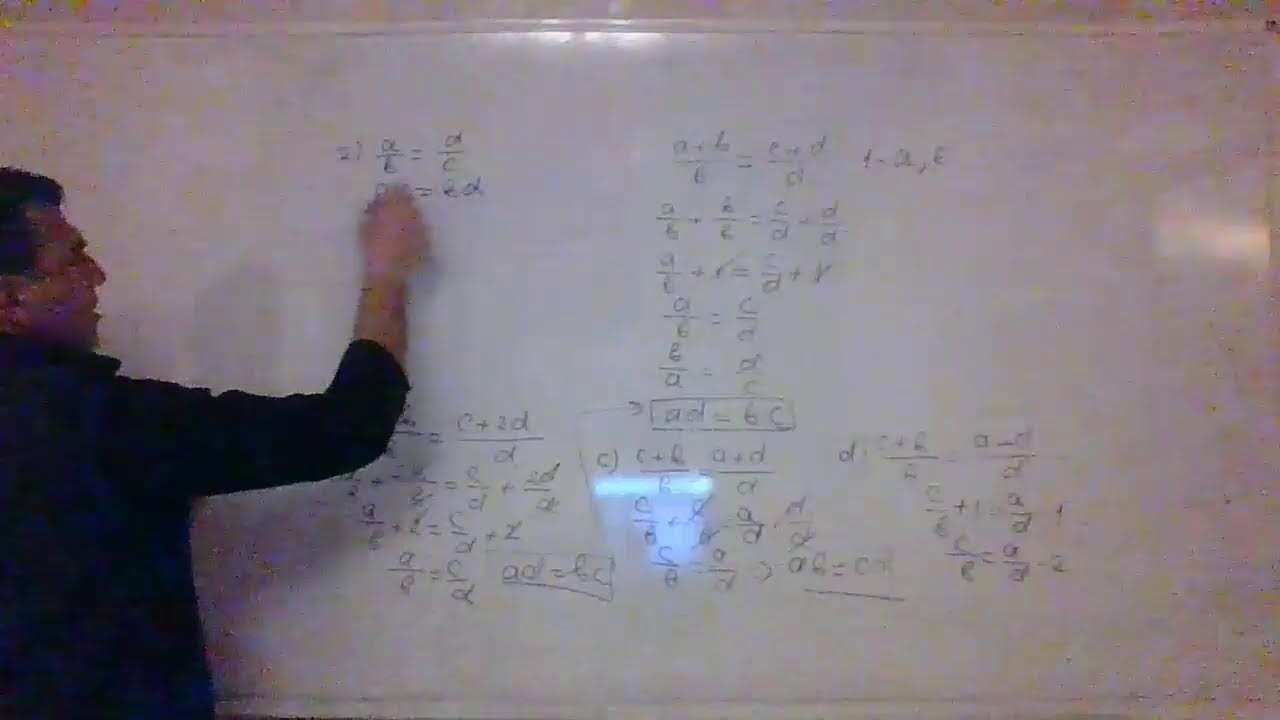 2) a/b = d/c
= bd
(a+b)/b = (c+d)/d 1-a,b
a/b + b/b = c/d + d/d
a/b + 1 = c/d + 1
a/b = c/d
b/a = d/c
ad = bc
= (c+2d)/d
= c/d + 2d/d
a/b + 2 = c/d + 2
a/b = c/d ad = bc
c) (c+b)/b (a+d)/d
c/b + a/d d/d
c/b = a/d => ab =
d: (c+b)/ (a-d)/d
c/b + 1 = a/d - 1
c/b = a/d - 2